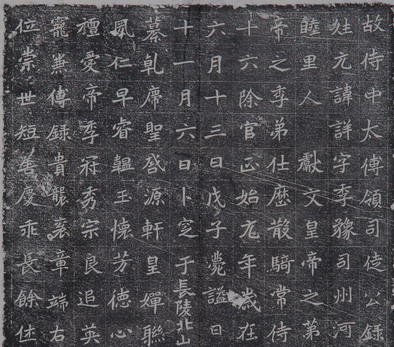 故侍中太傅領司徒公錄
姓元諱詳字季豫司州河
睦里人 獻文皇帝之第
帝之季弟仕歷散騎常侍
十六除官正始元年歲在
六月十三日戊子薨謚曰
十一月六日卜窆于長陵北山
纂乹席聖啓源軒皇嬋聯
風仁早睿韞玉懷芳德心
禋愛帝季冠秀宗良追英
寵兼傅錄貴襲衮章端右
位崇世短善慶乖長餘休